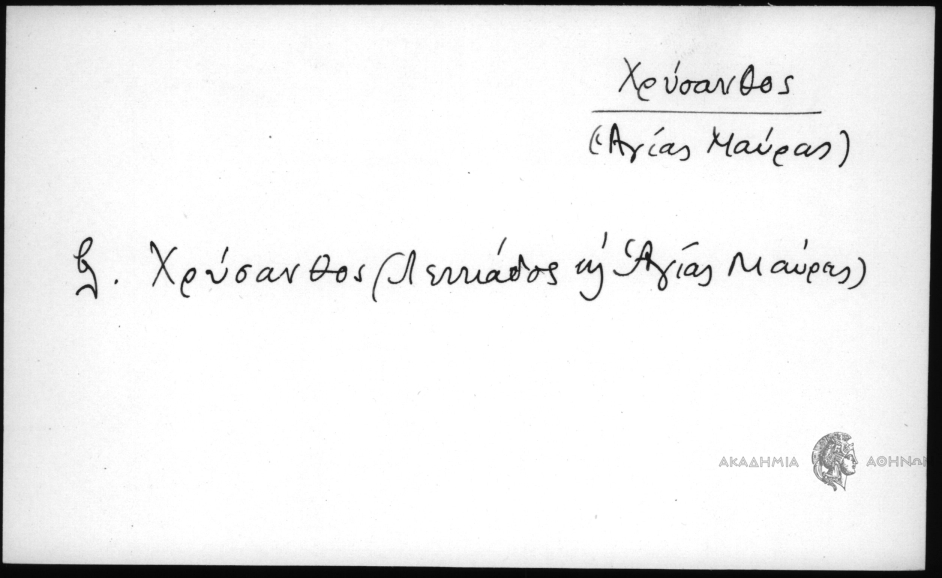 Χρύσανθος
(Ἁγίας Μαύρας)
βλ. Χρύσανθος (Λευκάδος καὶ Ἁγίας Μαύρας)
ΑΚΑΔΗΜΙΑ ΑΘΗΝΩΝ